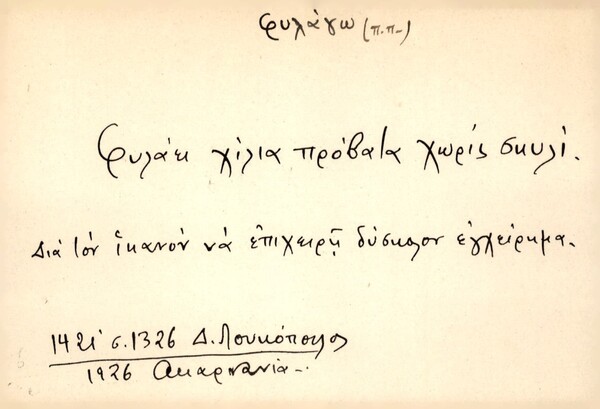 φυλάγω (π.π-)
Φυλάει χίλια πρόβατα χωρίς σκυλί.
Διά τόν ἱκανόν νά ἐπιχειρῇ δύσκολον ἐγχείρημα.
1421 σ.1326 Δ. Λουκόπουλος
1926 Ακαρνανία-.